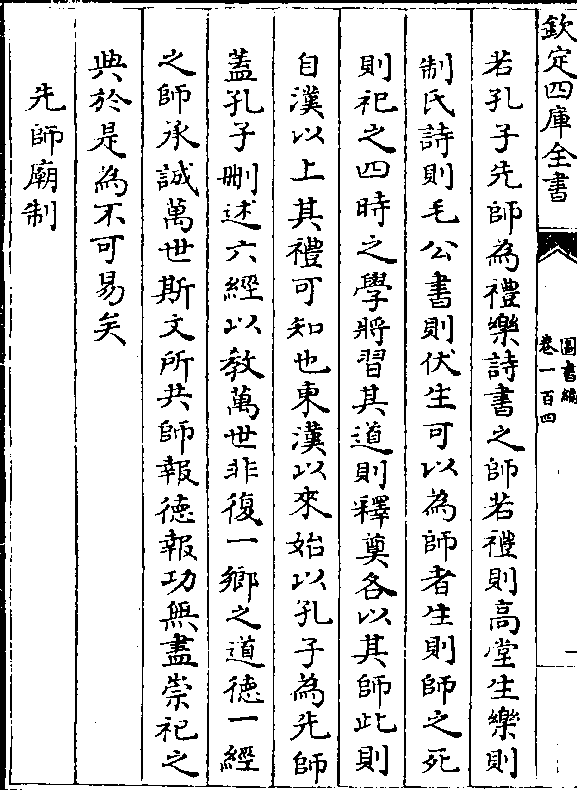 欽定四庫全書
圖書編
卷一百四
若孔子先師為禮樂詩書之師若禮則高堂生樂則
制氏詩則毛公書則伏生可以為師者生則師之死
則祀之四時之學將習其道則釋奠各以其師此則
自漢以上其禮可知也東漢以來始以孔子為先師
蓋孔子刪述六經以教萬世非復一鄉之道德一經
之師承誠萬世斯文所共師報德報功無盡崇祀之
典於是為不可易矣
先師廟制